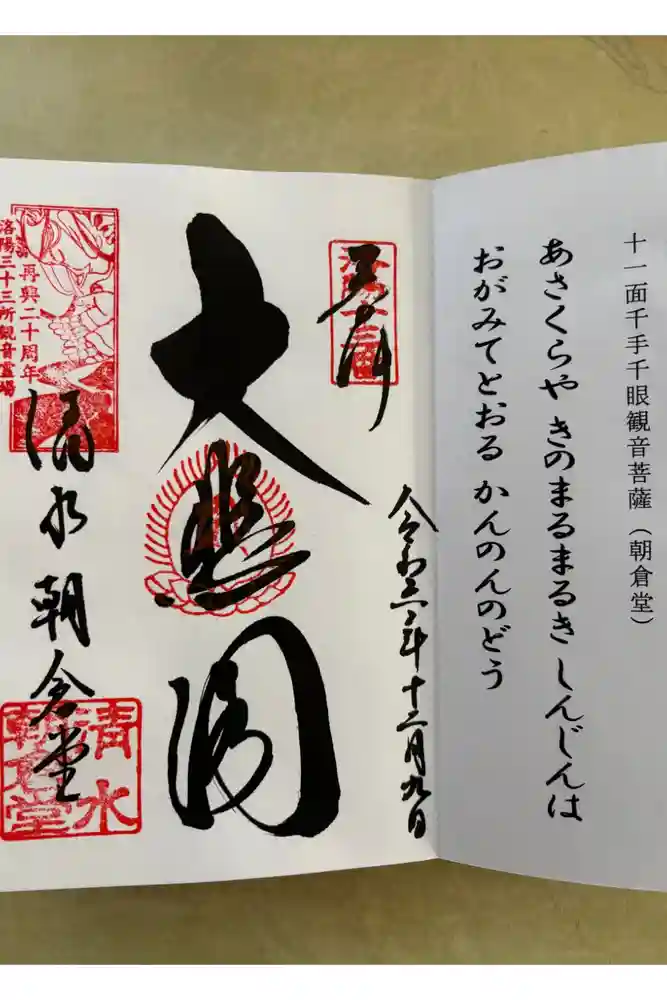 十一面千手千眼観音菩薩（朝倉堂）
あさくらや きのまるまるき しんじんは
おがみてとおる かんのんのどう
奉拝
令和三年十二月九日
大悲閣
再興二十周年
洛陽三十三所観音霊場
清水朝倉堂
清水
朝倉堂